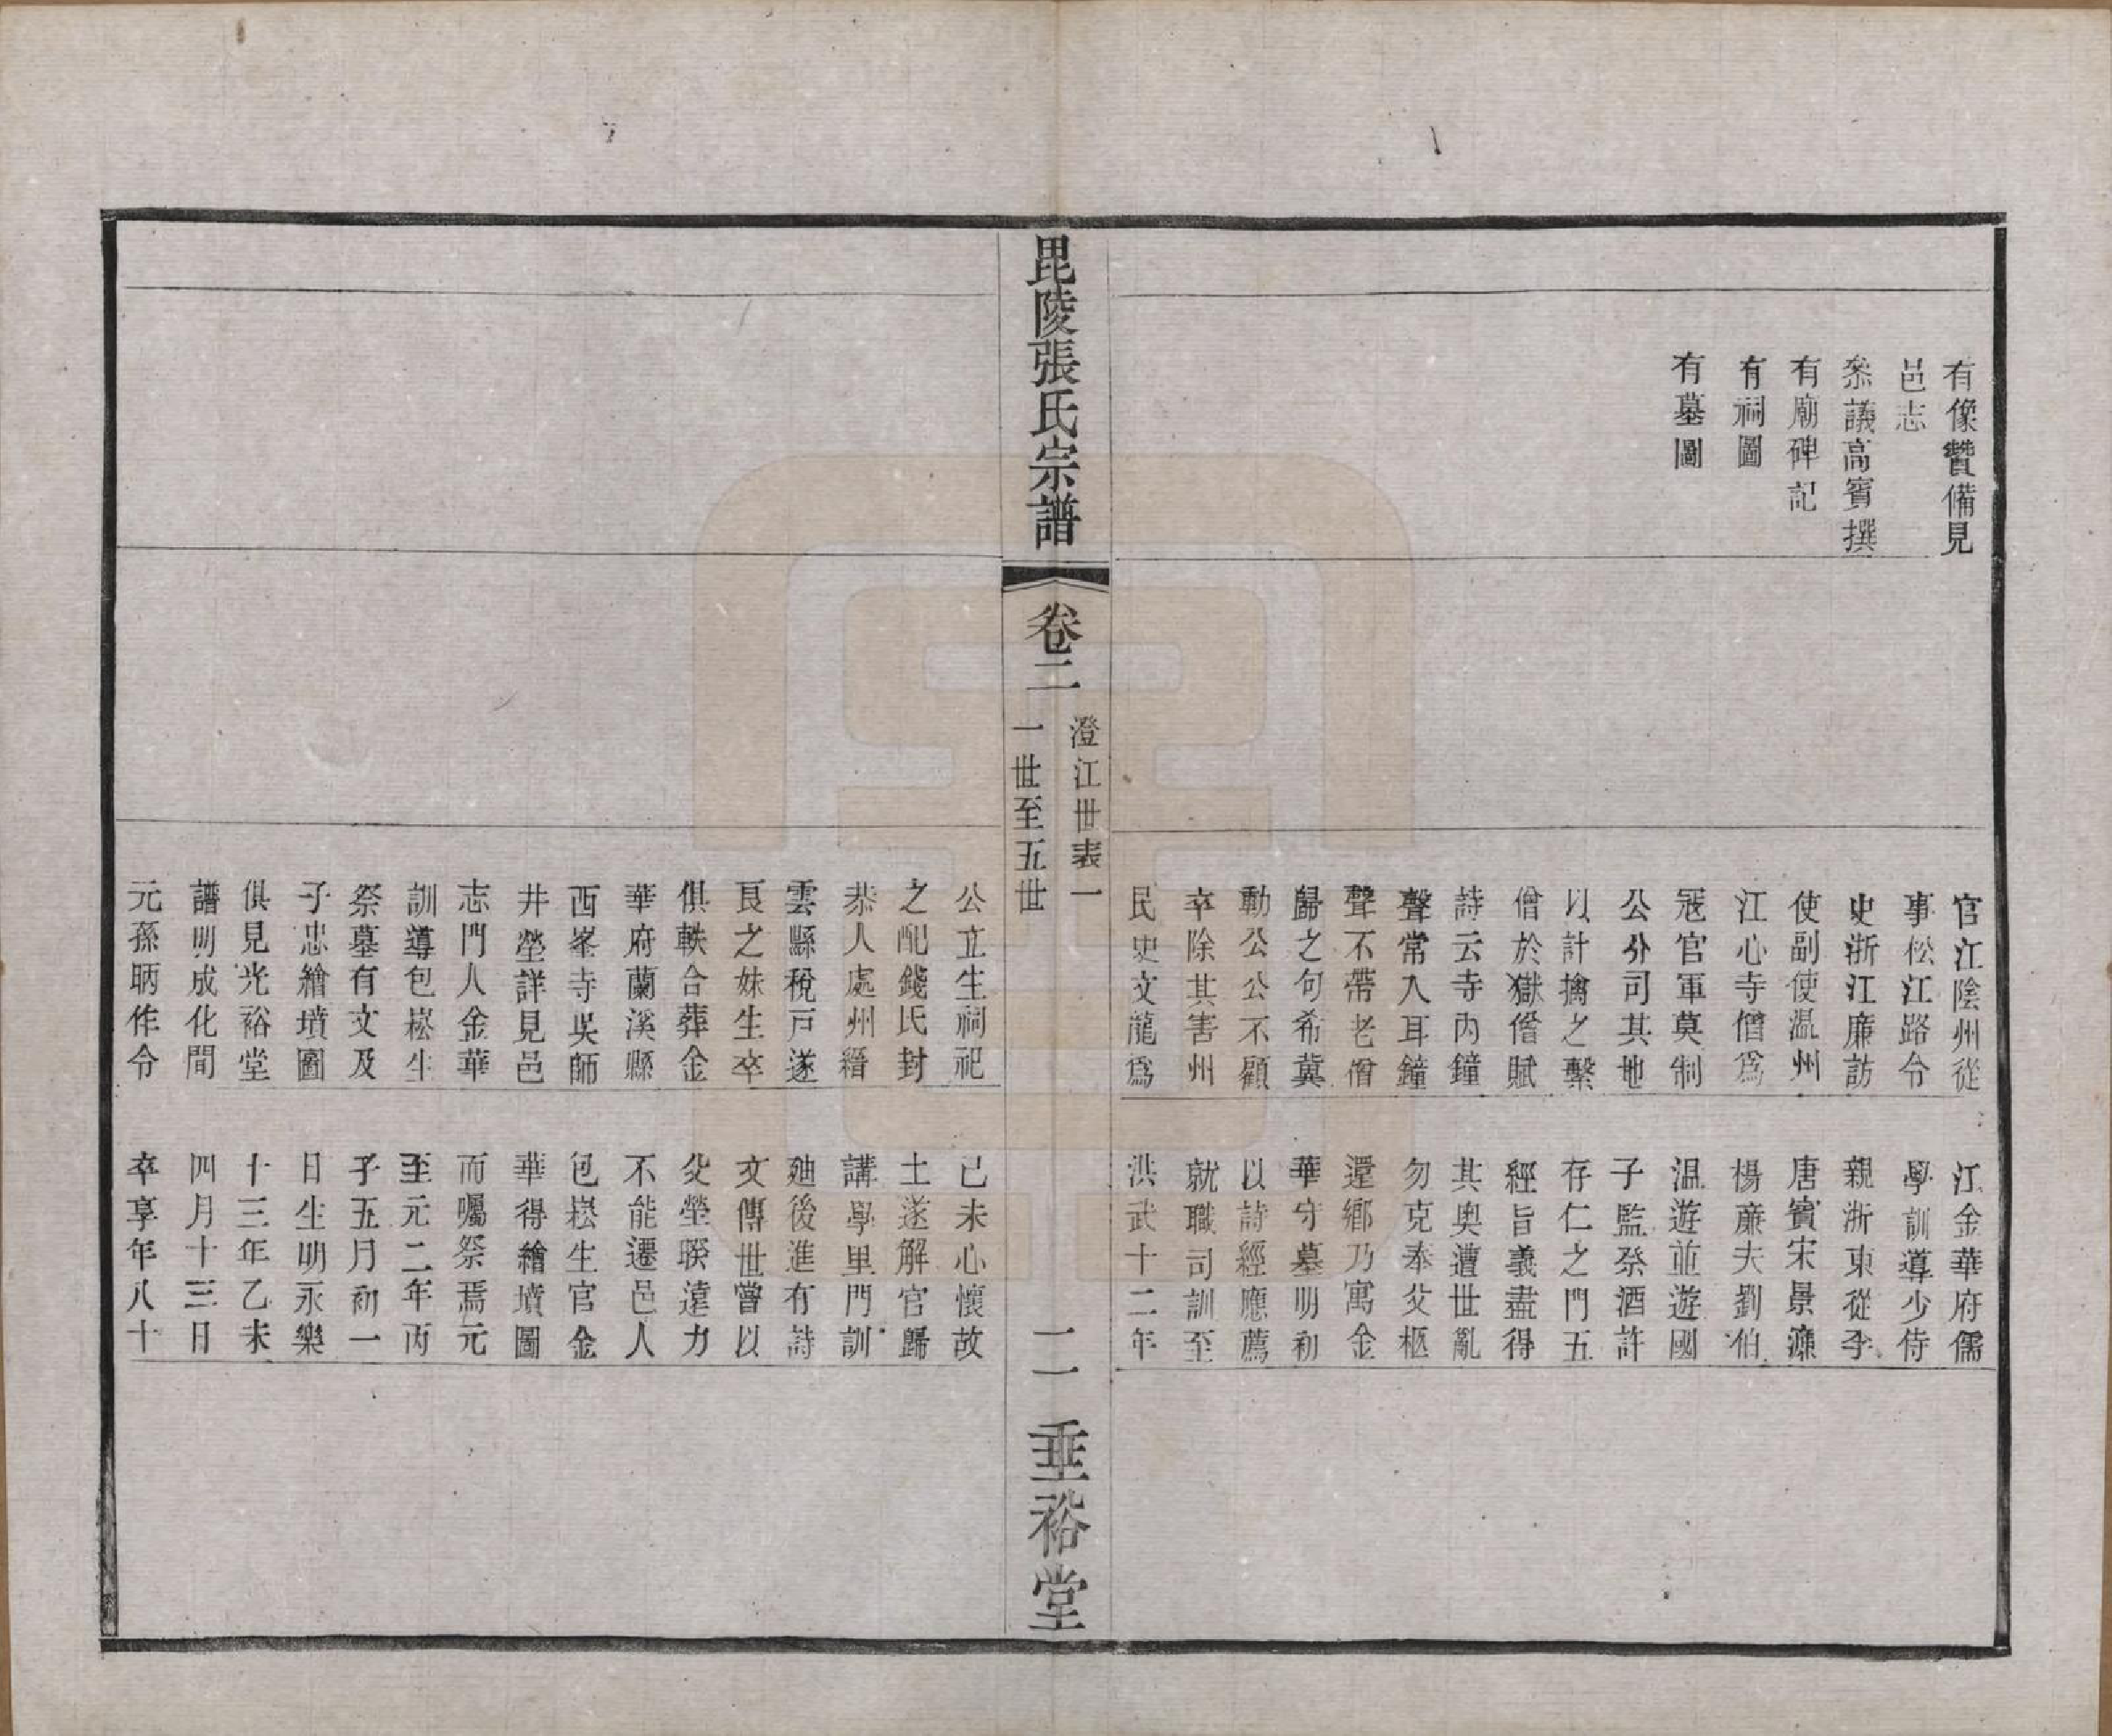 有像贊備見
邑志
叅議高賓撰
有廟碑記
有祠圖
有墓圖
官江陰州從
事松江路令
史浙江廉訪
使副使温州
江心寺僧爲
冦官軍莫制
公分司其地
以計擒之繫
僧於獄僧賦
詩云寺内鐘
聲常入耳鐘
聲不帶老僧
歸之句希冀
動公公不顧
卒除其害州
民史文龍爲
江金華府儒
學訓導少侍
親浙東從李
唐賓宋景濂
楊廉夫劉伯
温遊並遊國
子監祭酒許
存仁之門五
經旨義盡得
其奥遭世亂
勿克奉父柩
還鄉乃寓金
華守墓明初
以詩經應薦
就職司訓至
洪武十二年
毘陵張氏宗譜
卷二
澄江世表一
一世至五世
二
垂裕堂
公立生祠祀
之配錢氏封
恭人處州縉
雲縣稅戸遂
良之妹生卒
俱軼合葬金
華府蘭溪縣
西峯寺吳師
井塋詳見邑
志門人金華
訓導包崧生
祭墓有文及
子忠繪墳圖
俱見光裕堂
譜明成化間
元孫昞作令
已未心懷故
土遂解官歸
講學里門訓
廸後進有詩
文傳世嘗以
父塋暌遠力
不能遷邑人
包崧生官金
華得繪墳圖
而囑祭焉元
至元二年丙
子五月初一
日生明永樂
十三年乙未
四月十三日
卒享年八十